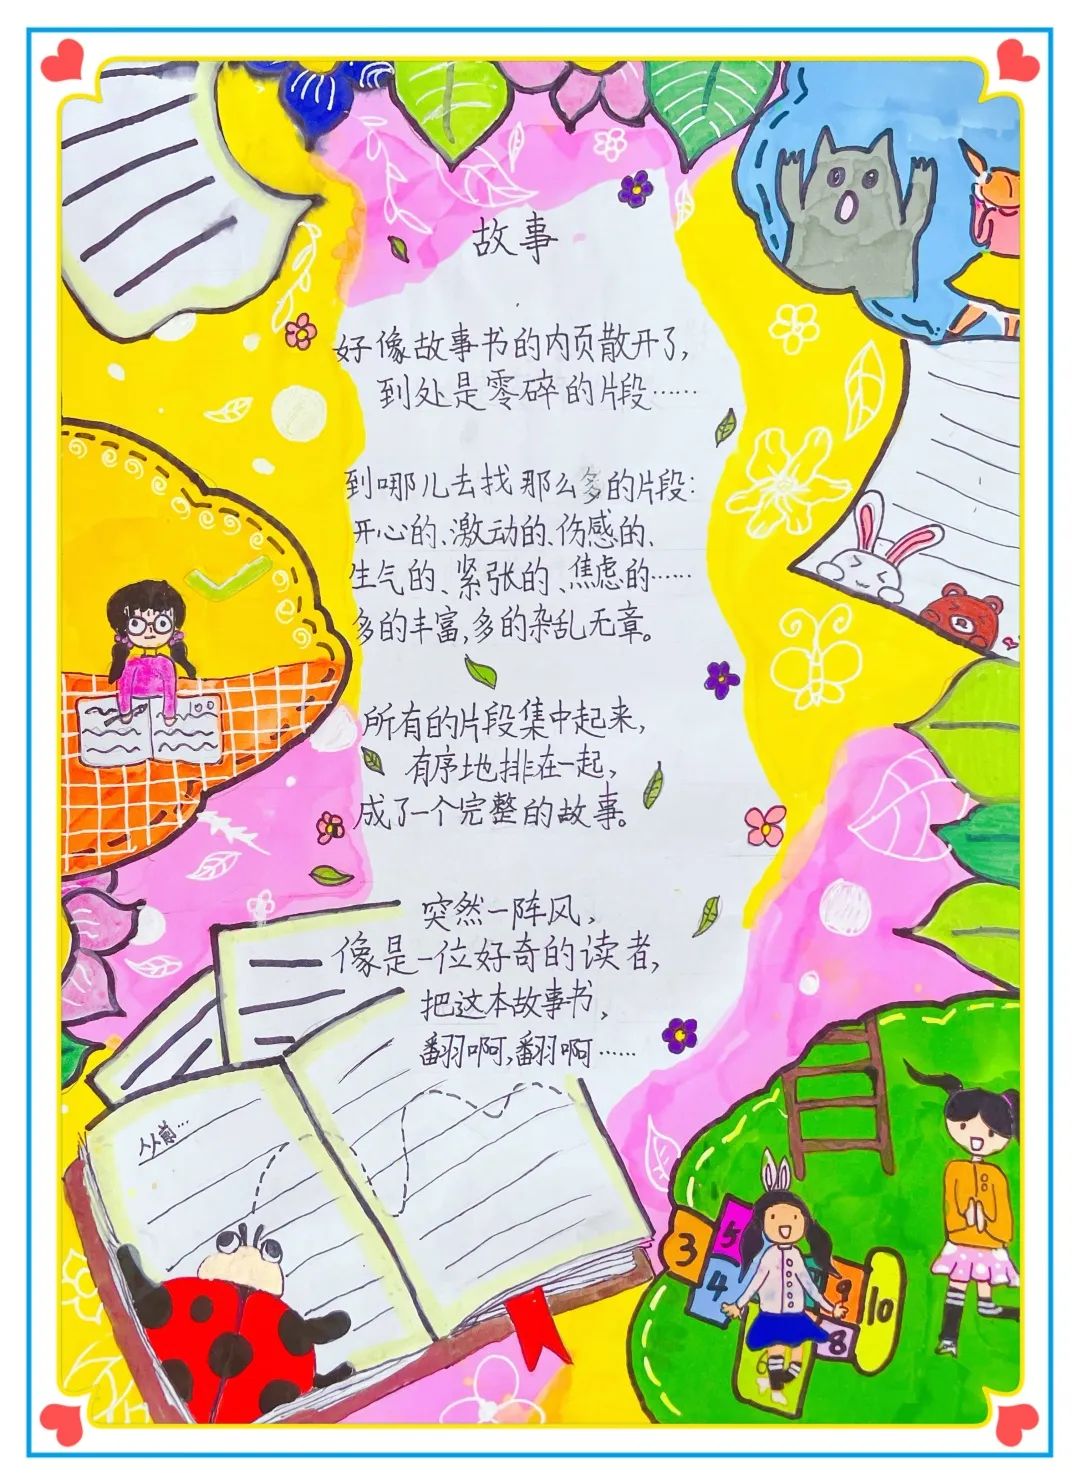 故事
好像故事书的内页散开了,
到处是零碎的片段……
到哪儿去找那么多的片段:
开心的、激动的、伤感的、
生气的、紧张的、焦虑的……
多的丰富,多的杂乱无章。
所有的片段集中起来,
有序地排在一起,
成了一个完整的故事。
突然一阵风,
像是一位好奇的读者,
把这本故事书,
翻啊,翻啊……
从前…
3
5
4
9
10
8